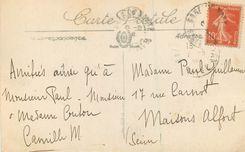 Carte Postale
Amitiés ainsi qu'à
Monsieur Paul. Monsieur
& Madame Outon
Camille M
Madame Paul Guillemin
17 rue Carnot
Maisons Alfort
Seine